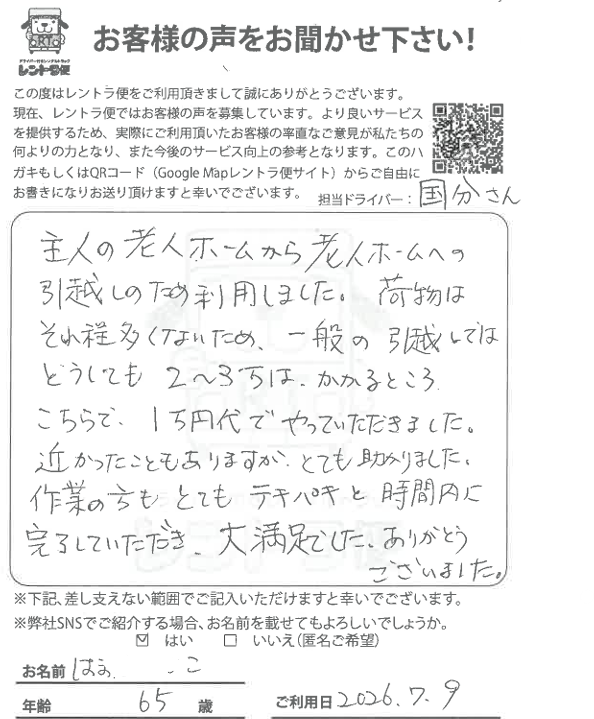 ORTO
ドライバー付きレンタルトラック
レントラ便
お客様の声をお聞かせ下さい!
この度はレントラ便をご利用頂きまして誠にありがとうございます。
現在、レントラ便ではお客様の声を募集しています。より良いサービス
を提供するため、実際にご利用頂いたお客様の率直なご意見が私たちの
何よりの力となり、また今後のサービス向上の参考となります。このハ
ガキもしくはQRコード（Google Mapレントラ便サイト）からご自由に
お書きになりお送り頂けますと幸いでございます。
担当ドライバー：国分さん
主人の老人ホームから老人ホームへの
引越しのため利用しました。荷物は
それ程多くないため、一般の引越しでは
どうしても2〜3万は、かかるところ
こちらで、1万円代でやっていただきました。
近かったこともありますが、とても助かりました。
作業の方もとてもテキパキと時間内に
完了していただき、大満足でした。ありがとう
ございました。
※下記、差し支えない範囲でご記入いただけますと幸いでございます。
※弊社SNSでご紹介する場合、お名前を載せてもよろしいでしょうか。
☑ はい □ いいえ（匿名ご希望）
お名前 こ
年齢 65 歳
ご利用日 2026.7.9